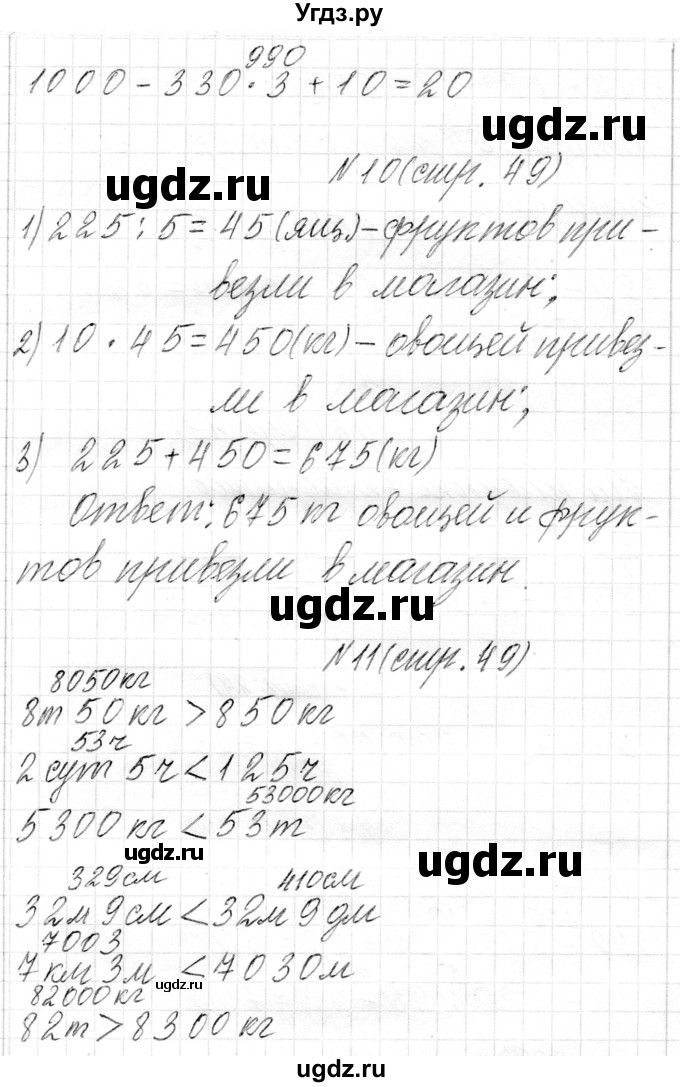 Угдз.ру
990
1000-330·3+10=20
ugdz.ru
N10(стр. 49)
ugdz.ru
1) 225:5=45(ящ.)-фруктов при-
везли в магазин;
2) 10·45=450(кг)-овощей привез-
ли в магазин;
ugdz.ru
3) 225+450=675(кг)
Ответ: 675 кг овощей и фрук-
тов привезли в магазин.
ugdz.ru
N11(стр. 49)
8050кг
8т 50кг > 850кг
53ч
2 сут 5ч < 125ч
53000кг
5300кг < 53т
ugdz.ru
ugdz.ru
329см 410см
32м 9см < 32м 9дм
7003
7км 3м < 7030м
ugdz.ru
82000кг
82т > 8300кг
ugdz.ru